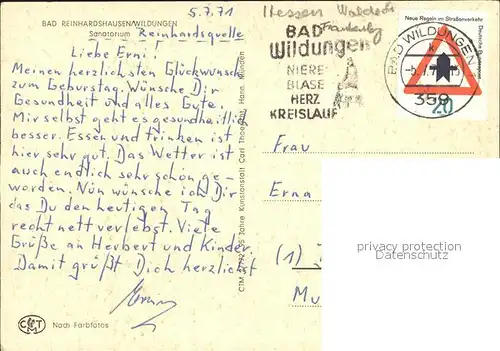 5.7.71
BAD REINHARDSHAUSEN/WILDUNGEN
Sanatorium Reinhardsquelle
Liebe Erni!
Meinen herzlichsten Glückwunsch
zum Geburstag. Wünsche Dir
Gesundheit und alles Gute.
Mir selbst geht es gesundheitlich
besser. Essen und trinken ist
hier sehr gut. Das Wetter ist
auch endlich sehr schön ge-
worden. Nun wünsche ich Dir
das Du den heutigen Tag
recht nett verlebst. Viele
Grüße an Herbert und Kinder
Damit grüßt Dich herzlichst
CTM
Nach Farbfotos
Kunstanstalt Carl Thoericht, Hann. Münden
Hessen Waldeck
Frankenberg
BAD
Wildungen
NIERE-
BLASE
HERZ
KREISLAUF
BAD WILDUNGEN
359
Neue Regeln im Straßenverkehr
Deutsche Bundespost
20
Frau
Erna
(1)
Mu
privacy protection
watermark